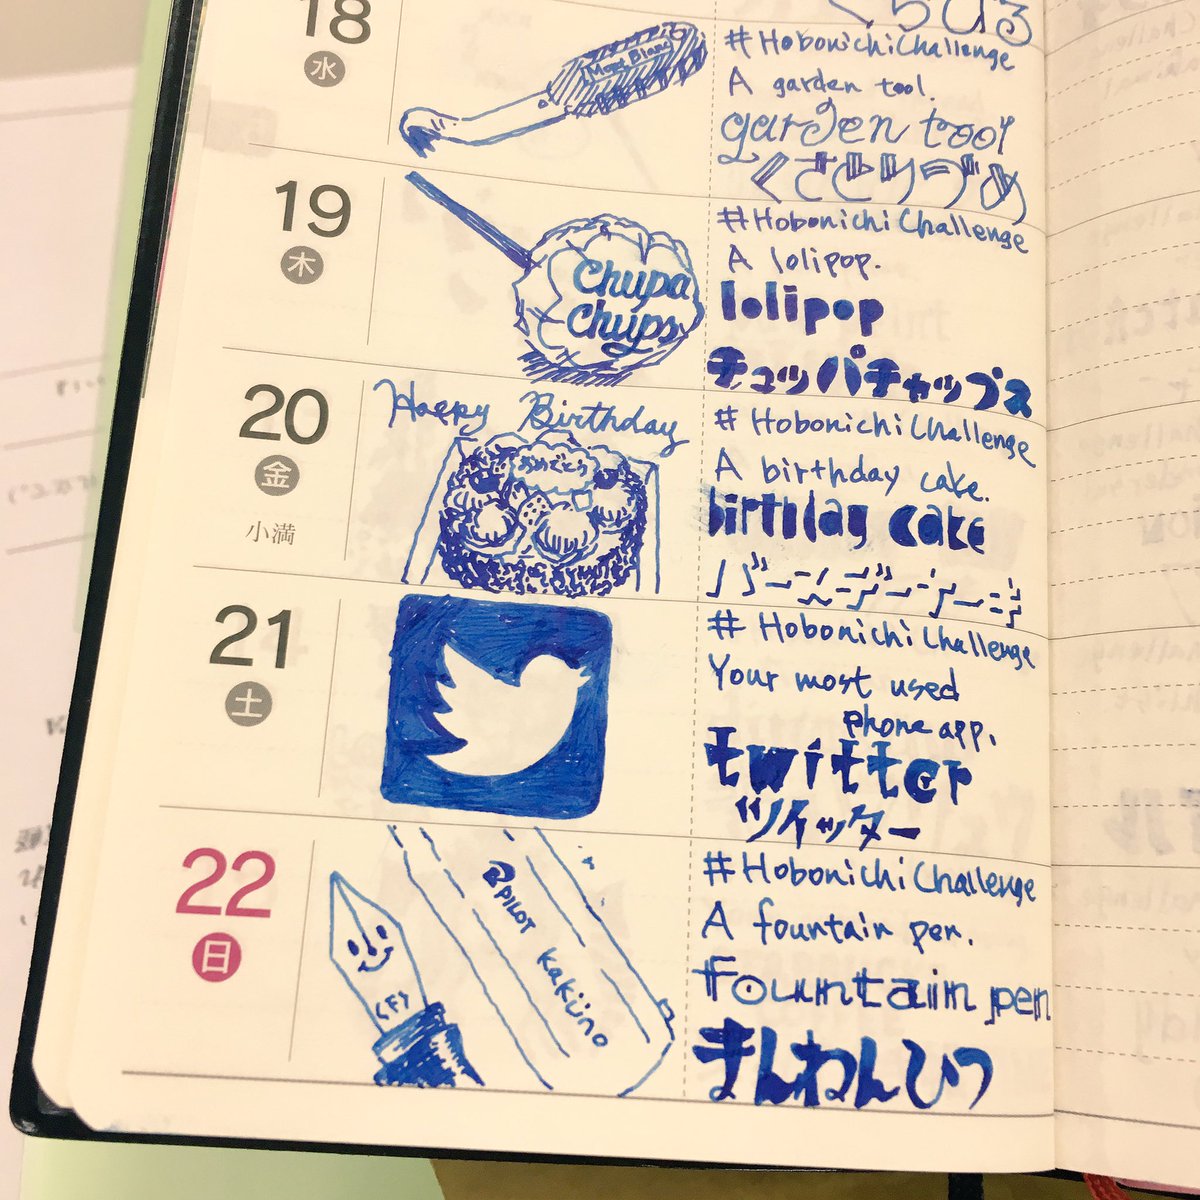 くちびる
18
水
Mont Blanc
#HobonichiChallenge
A garden tool.
garden tool
くさとりづめ
19
木
Chupa
Chups
#HobonichiChallenge
A lolipop.
lolipop
チュッパチャップス
20
金
小満
Happy Birthday
おめでとう
# HobonichiChallenge
A birthday cake.
birthday cake
バースデーケーキ
21
土
# HobonichiChallenge
Your most used
phone app.
twitter
ツイッター
22
日
<F>
PILOT kaküno
#HobonichiChallenge
A fountain pen.
Fountain pen
まんねんひつ